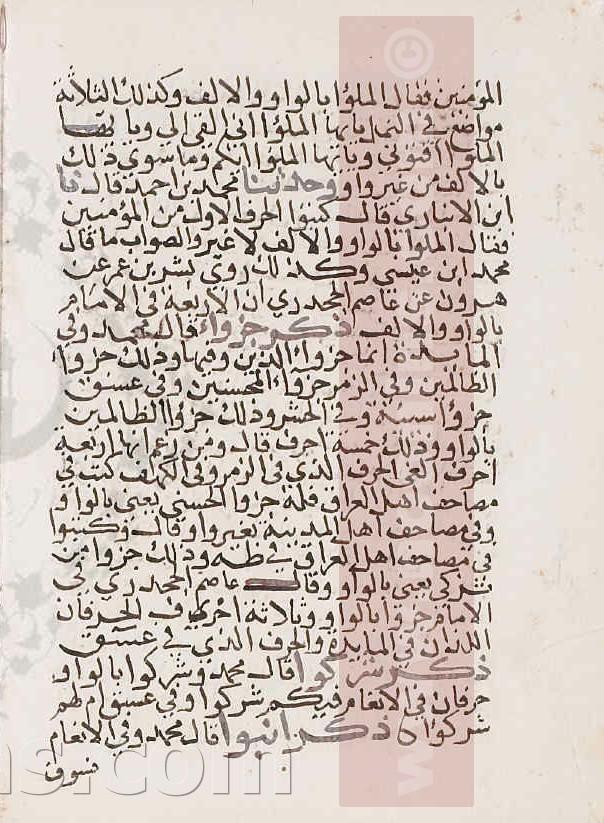 المؤمنين فقال الملؤا بالواو والالف وكذلك الثلاثة
مواضع في النمل يايها الملؤا انى القى الى ويايها
الملوا افتوني ويايها الملوا ايكم وما سوى ذلك
بالالف من غير واو وحدثنا محمد بن احمد قال نا
ابن الانباري قال كتبوا الحرف الاول من المؤمنين
فقال الملوا بالواو والالف لا غير والصواب ما قال
محمد ابن عيسى وكذلك روى بشر بن عمر عن
هرون عن عاصم الجحدري ان الاربعة في الامام
بالواو والالف ذكر جزوا قال محمد وفي
المايدة انما جزوا الذين وفيها وذلك جزوا
الظالمين وفي الزمر جزوا المحسنين وفي عسق
جزوا سيية وفي الحشر وذلك جزوا الظالمين
بالواو وذلك خمسة احرف قال ومن زعم انها اربعة
احرف القى الحرف الذي في الزمر وفي الكهف كتب في
مصاحف اهل العراق فله جزوا الحسنى يعنى بالواو
وفي مصاحف اهل المدينة بغير واو قال وكتبوا
في مصاحف اهل العراق في طه وذلك جزوا من
تزكى يعنى بالواو وقال عاصم الجحدري في
الامام جزوا بالواو ثلاثة احرف الحرفان
اللذان في المايدة والحرف الذي في عسق
ذكر شركوا قال محمد وشركوا بالواو
حرفان في الانعام فيكم شركوا وفي عسق ام لهم
شركوا ذكر انبوا قال محمد وفي الانعام
فسوف
ns.com
©
www